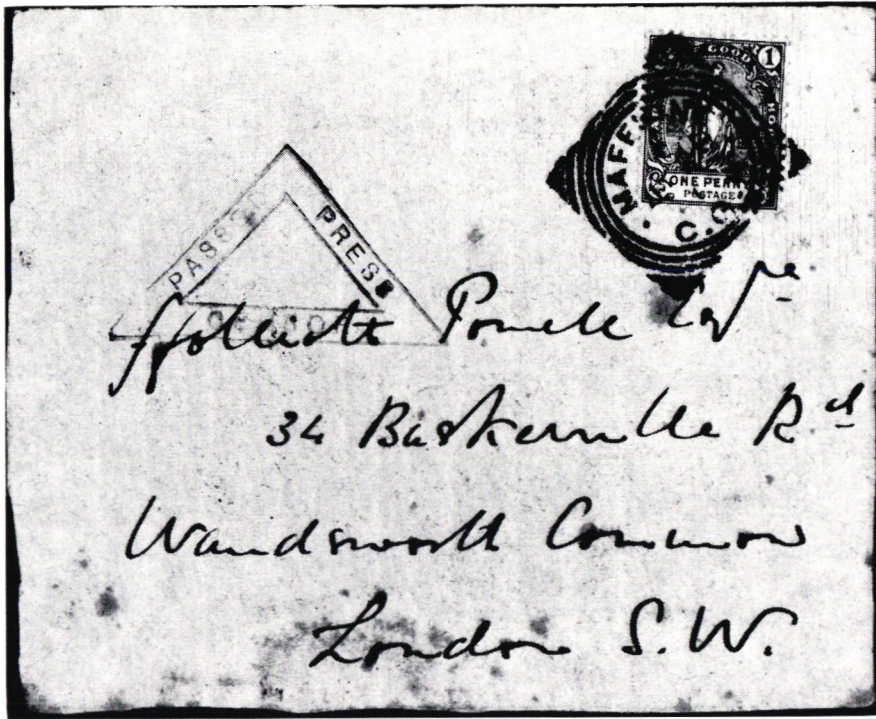 GOOD
1
ONE PENNY
POSTAGE
MAFE
C.G.
PASSED
PRESS
ffolliott Powell Esqre
34 Baskerville Rd
Wandsworth Common
London S.W.